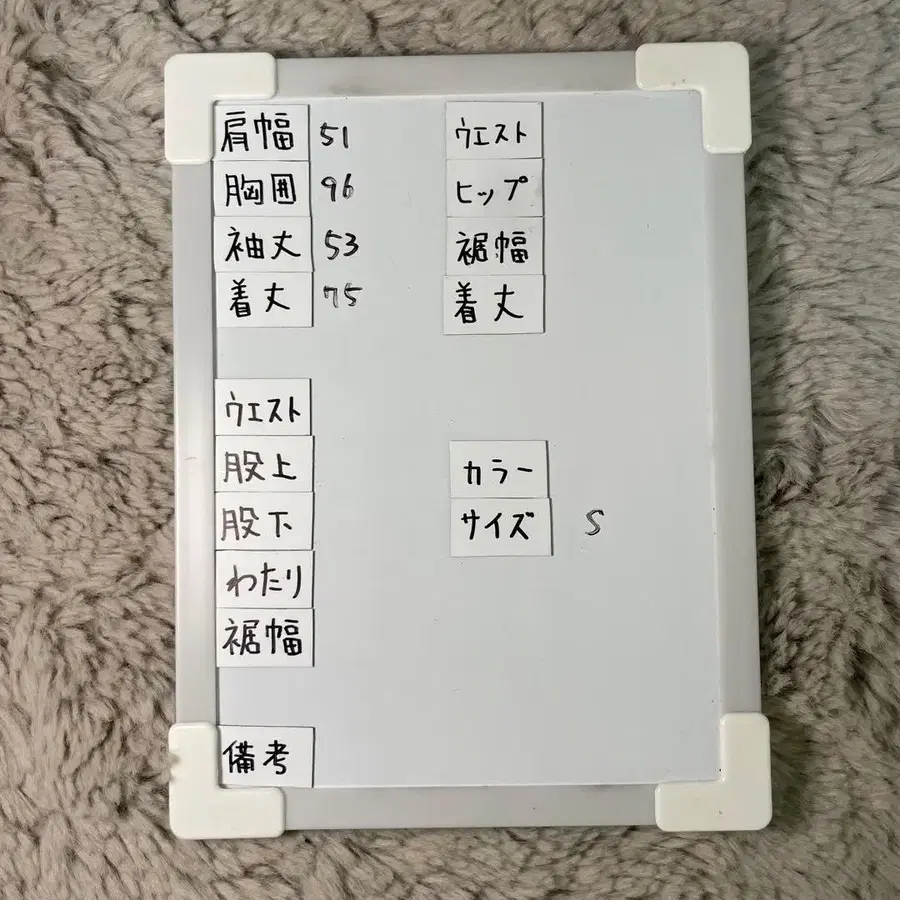 肩幅 51
胸囲 96
袖丈 53
着丈 75
ウエスト
股上
股下
わたり
裾幅
備考
ウエスト
ヒップ
裾幅
着丈
カラー
サイズ S